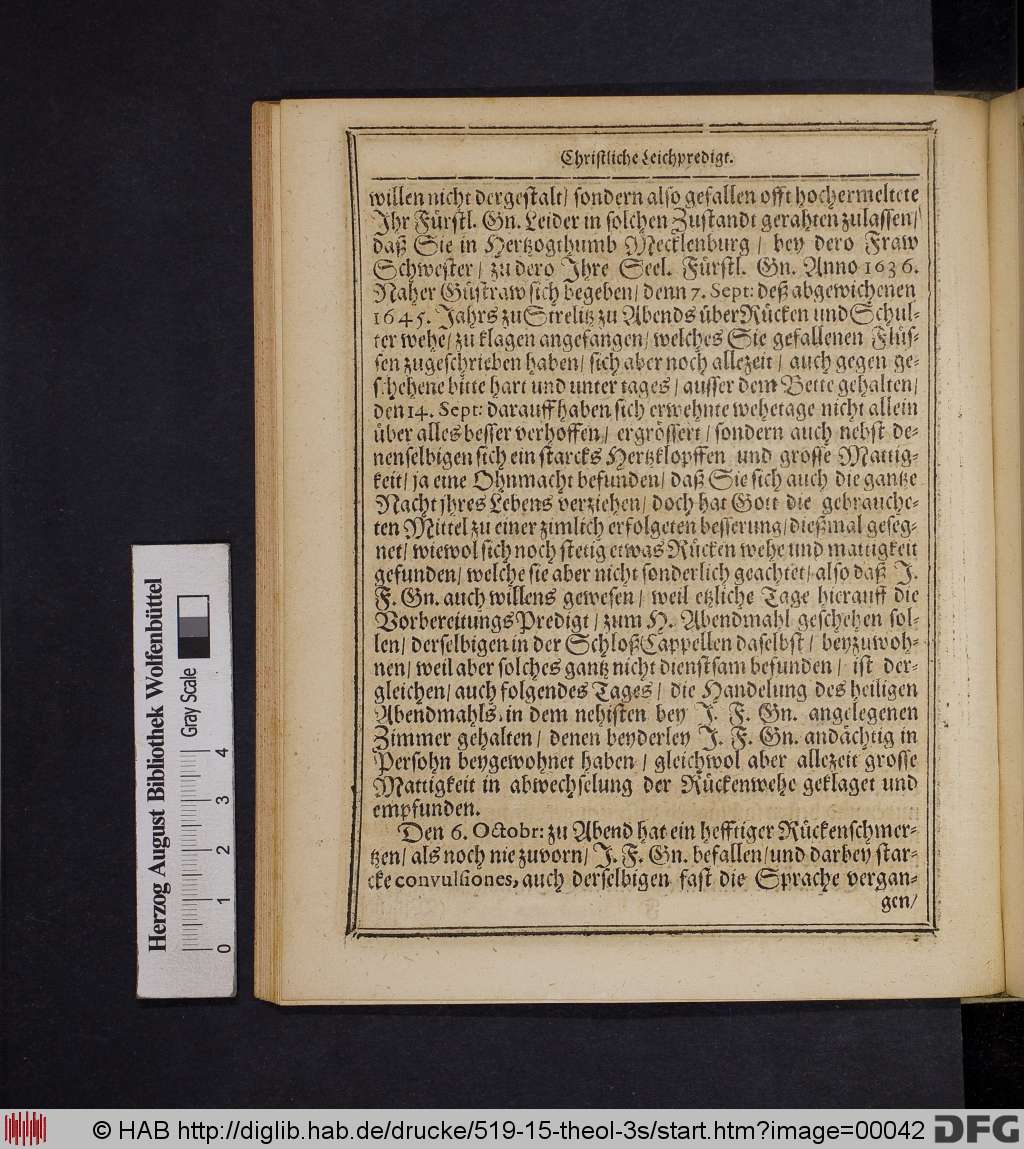 Christliche Leichpredigt.
willen nicht dergestalt/ sondern also gefallen offt hochermeltete
Ihr Fürstl. Gn. Leider in solchen Zustandt gerahten zulassen/
daß Sie in Hertzogthumb Mecklenburg/ bey dero Fraw
Schwester/ zu dero Ihre Seel. Fürstl. Gn. Anno 1636.
Naher Güstraw sich begeben/ denn 7. Sept: deß abgewichenen
1645. Jahrs zu Strelitz zu Abends über Rücken und Schul-
ter wehe/ zu klagen angefangen/ welches Sie gefallenen Flüs-
sen zugeschrieben haben/ sich aber noch allezeit/ auch gegen ge-
schehene bitte hart und unter tages/ ausser dem Bette gehalten/
den 14. Sept: darauff haben sich erwehnte wehetage nicht allein
über alles besser verhoffen/ ergrössert/ sondern auch nebst de-
nenselbigen sich ein starcks Hertzklopffen und grosse Mattig-
keit/ ja eine Ohnmacht befunden/ daß Sie sich auch die gantze
Nacht jhres Lebens verziehen/ doch hat Gott die gebrauche-
ten Mittel zu einer zimlich erfolgeten besserung/ dießmal geseg-
net/ wiewol sich noch stetig etwas Rücken wehe und mattigkeit
gefunden/ welche sie aber nicht sonderlich geachtet/ also daß J.
F. Gn. auch willens gewesen/ weil etzliche Tage hierauff die
Vorbereitungs Predigt/ zum H. Abendmahl geschehen sol-
len/ derselbigen in der Schloß Cappellen daselbst/ beyzuwoh-
nen/ weil aber solches gantz nicht dienstsam befunden/ ist der-
gleichen/ auch folgendes Tages/ die Handelung des heiligen
Abendmahls in dem nehisten bey J. F. Gn. angelegenen
Zimmer gehalten/ denen beyderley J. F. Gn. andächtig in
Persohn beygewohnet haben/ gleichwol aber allezeit grosse
Mattigkeit in abwechselung der Rückenwehe geklaget und
empfunden.
Den 6. Octobr: zu Abend hat ein hefftiger Rückenschmer-
tzen/ als noch nie zuvorn/ J. F. Gn. befallen/ und darbey star-
cke convulsiones, auch derselbigen fast die Sprache vergan-
gen/
Herzog August Bibliothek Wolfenbüttel
Gray Scale
0 1 2 3 4
© HAB http://diglib.hab.de/drucke/519-15-theol-3s/start.htm?image=00042
DFG